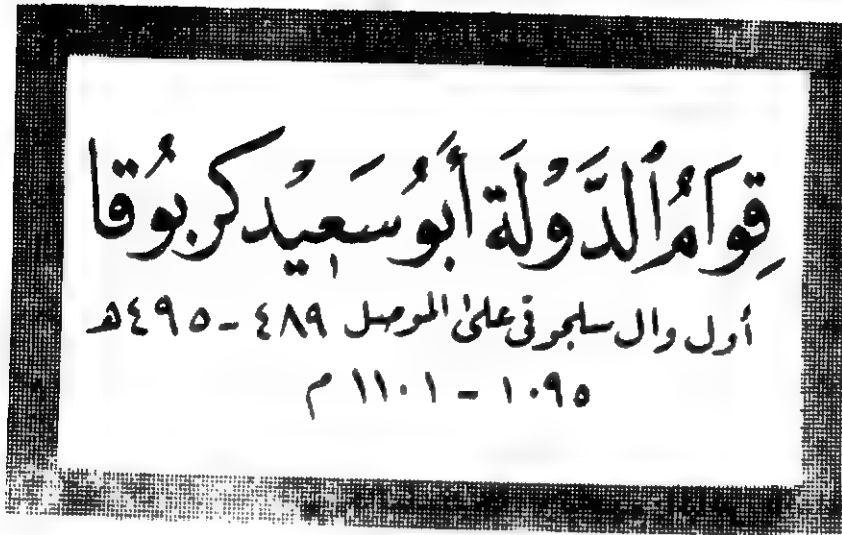 قِوَامُ ٱلدَّوْلَة أَبُو سَعِيْد كربُوقا
أول وال سلجوقى على الموصل ٤٨٩ - ٤٩٥هـ
١٠٩٥ - ١١٠١ م